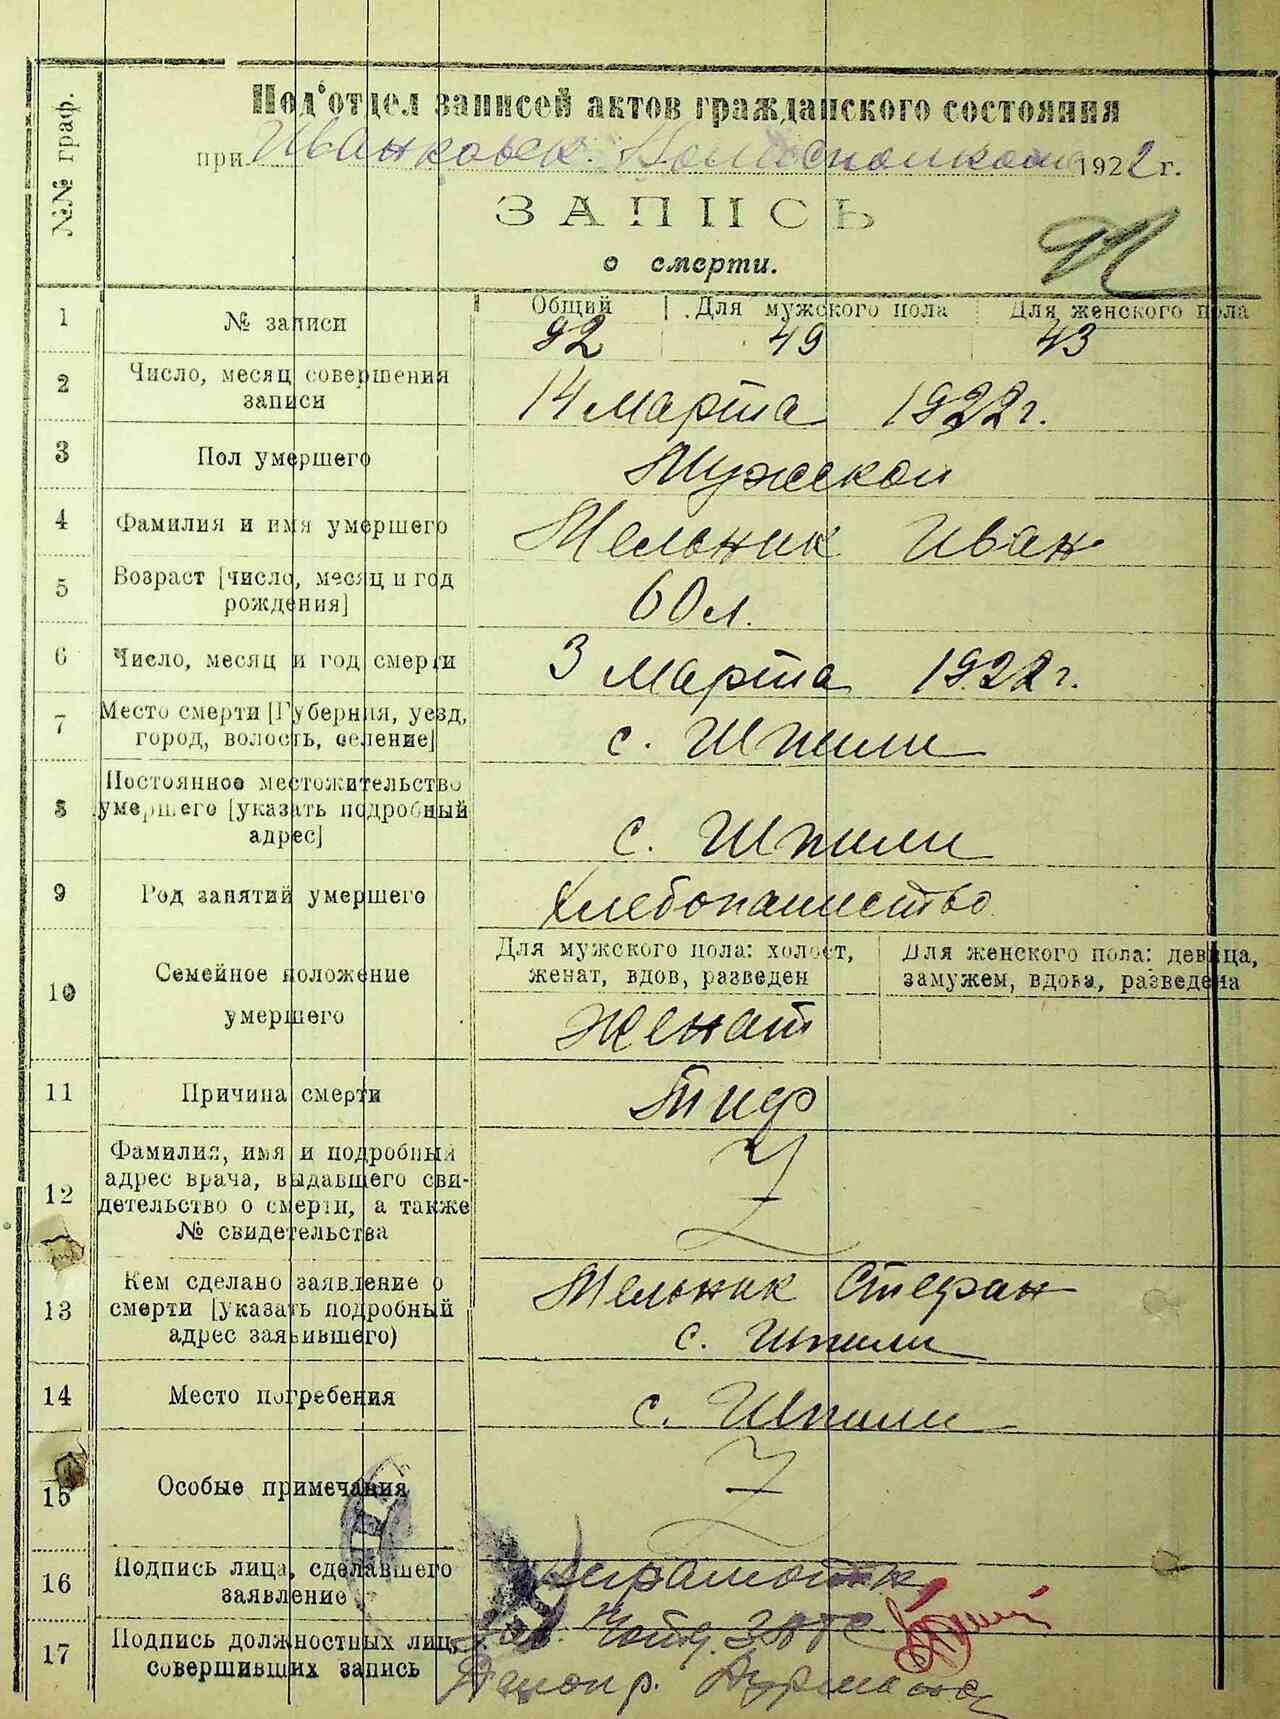 №№ граф.
Под'отдел записей актов гражданского состояния
при Иванковск. Волисполкоме 1922 г.
ЗАПИСЬ
о смерти.
1 № записи
Общий Для мужского пола Для женского пола
92 49 43
2 Число, месяц совершения записи
14 Марта 1922 г.
3 Пол умершего
Мужской
4 Фамилия и имя умершего
Мельник Иван
5 Возраст [число, месяц и год
рождения]
60 л.
6 Число, месяц и год смерти
3 Марта 1922 г.
7 Место смерти [Губерния, уезд,
город, волость, селение]
с. Шпили
8 Постоянное местожительство
умершего [указать подробный
адрес]
с. Шпили
9 Род занятий умершего
Хлебопашество
10 Семейное положение
умершего
Для мужского пола: холост,
женат, вдов, разведен
Для женского пола: девица,
замужем, вдова, разведена
Женат
11 Причина смерти
Тиф
12 Фамилия, имя и подробный
адрес врача, выдавшего сви-
детельство о смерти, а также
№ свидетельства
13 Кем сделано заявление о
смерти [указать подробный
адрес заявившего)
Мельник Стефан
с. Шпили
14 Место погребения
с. Шпили
15 Особые примечания
16 Подпись лица, сделавшего
заявление
неграмотн
17 Подпись должностных лиц,
совершивших запись
Зав. Подд. ЗАГС
Делопр.